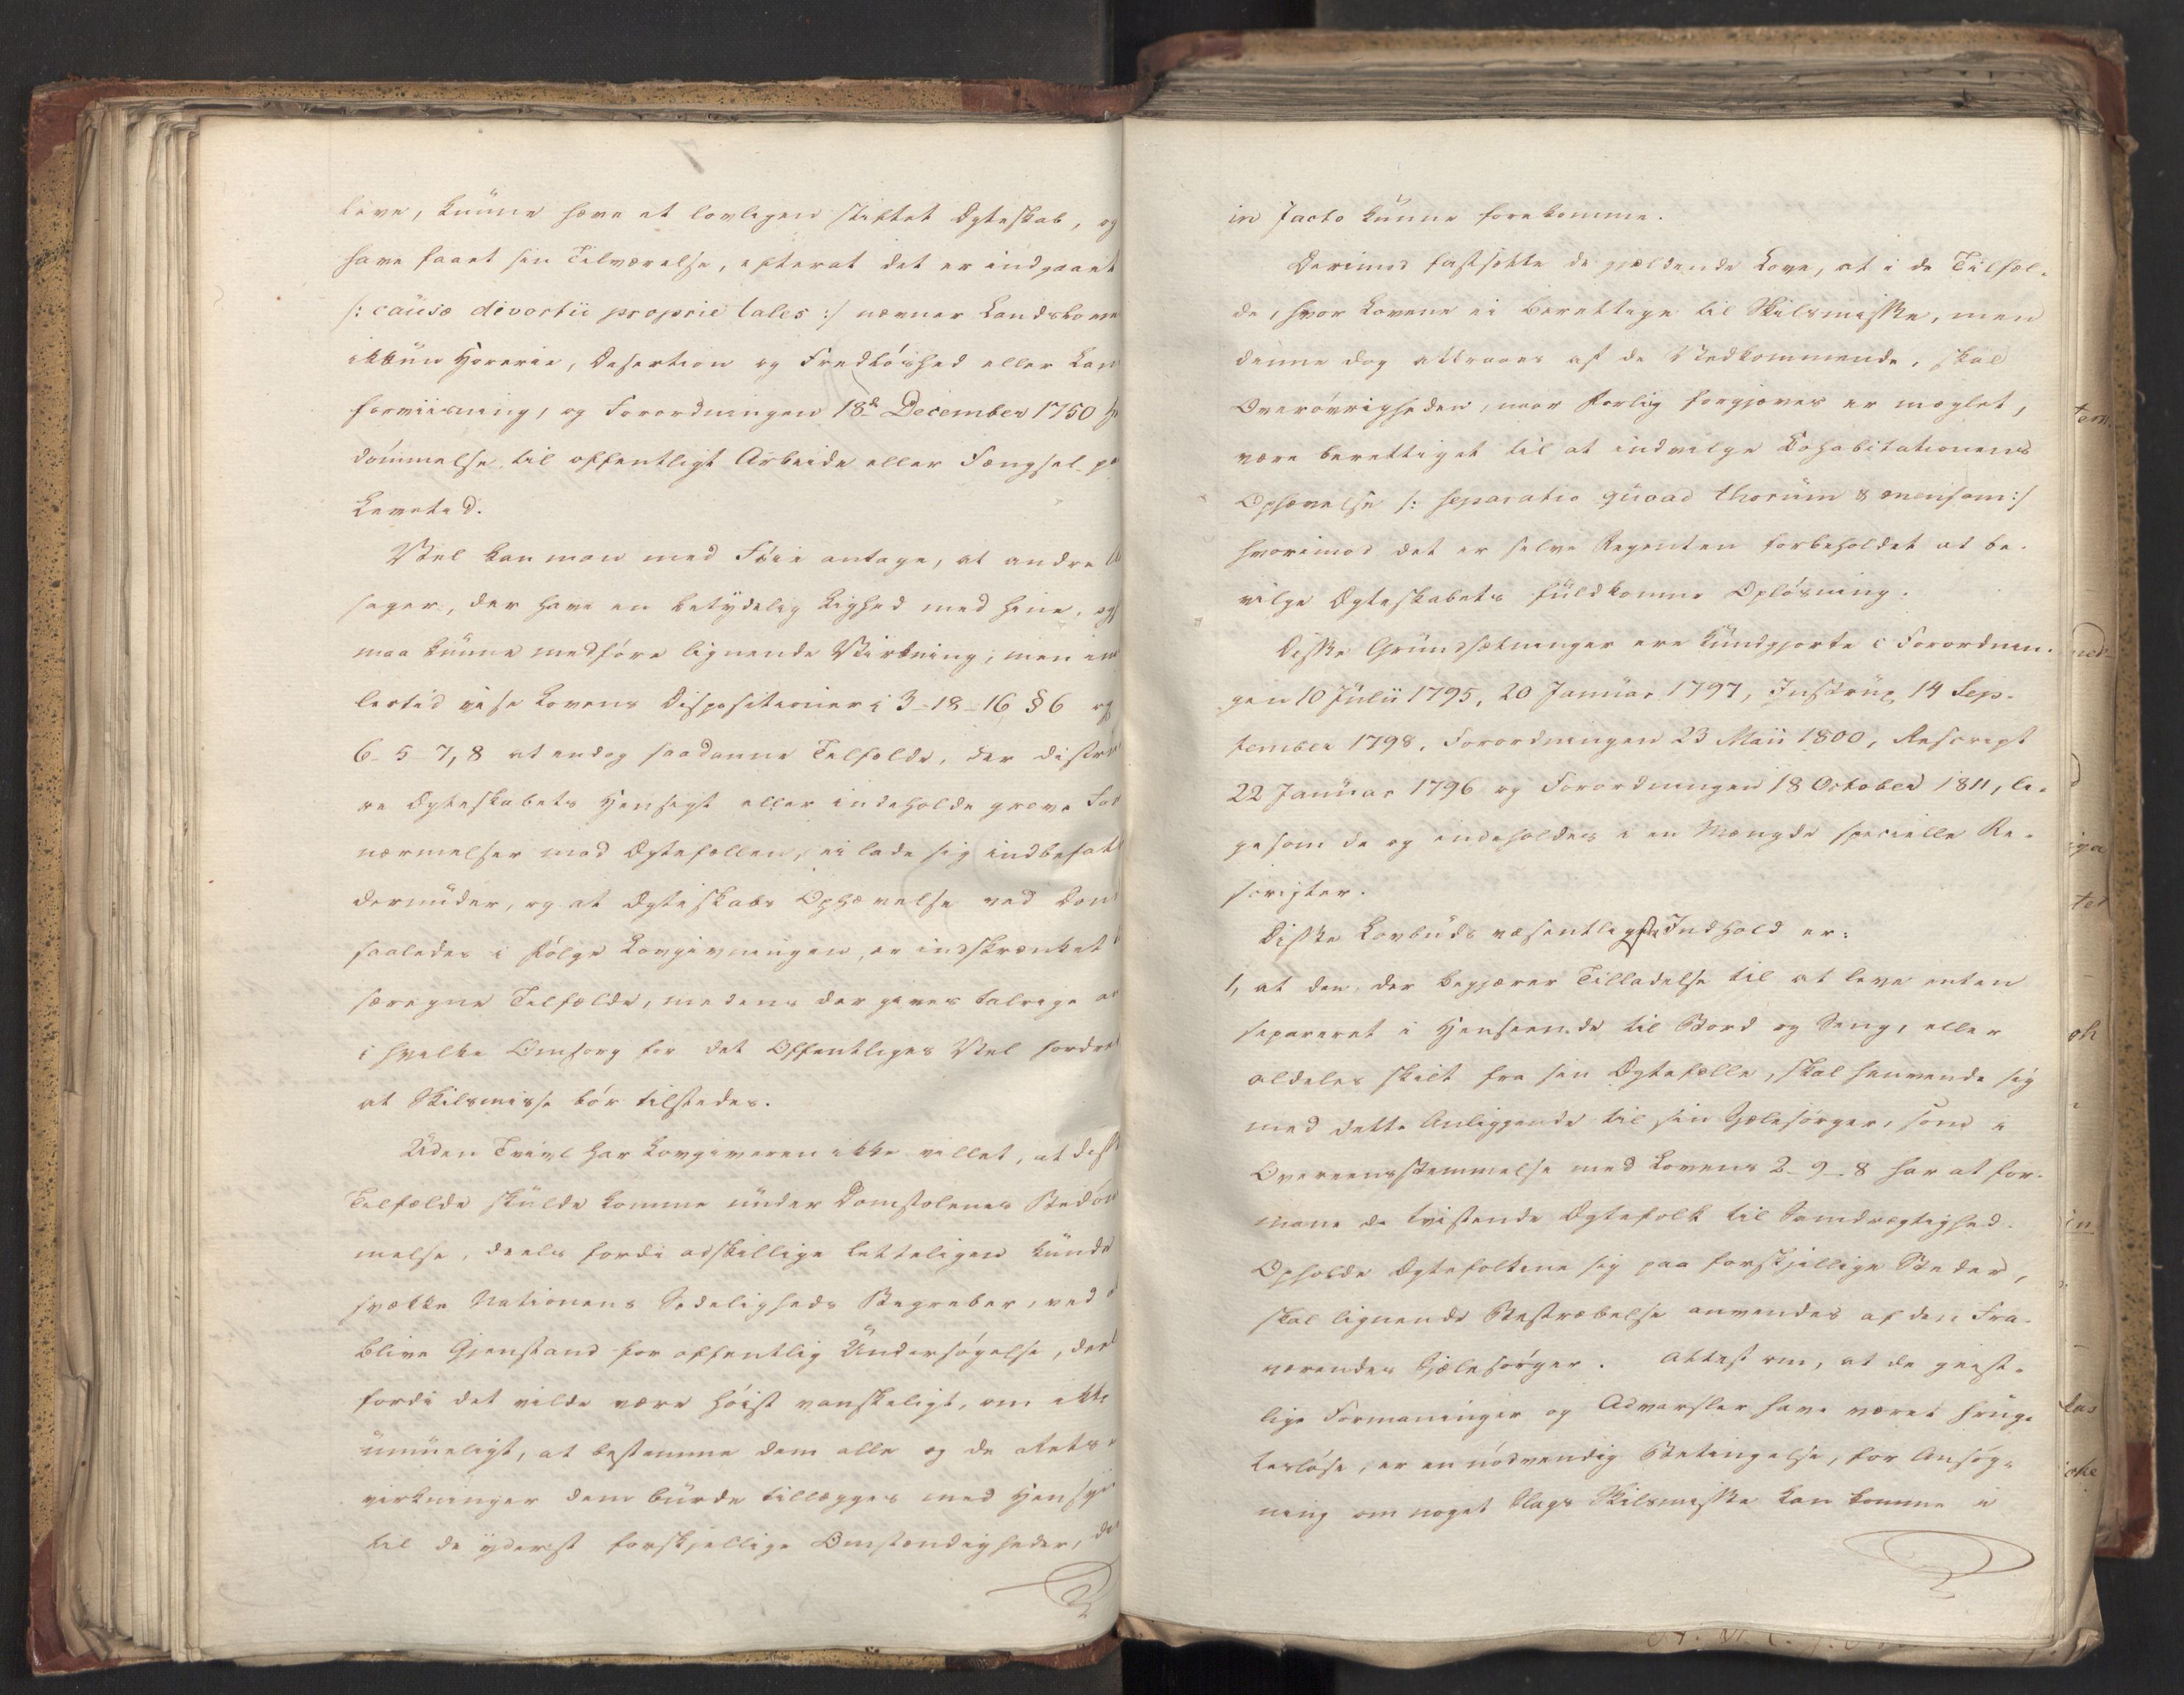 live, kunne hæve et lovligen stiftet Ægteskab, og
have faaet sin Tilværelse, efterat det er indgaaet
/: causæ divortii proprie tales :/ nævner Landsloven
ikkun Horerie, Desertion og Fredløshed eller Lan
forviisning, og Forordningen 18de December 1750
dømmelse til offentligt Arbeide eller Fængsel på
Levetid.
Vel kan man med Føie antage, at andre
sager, der have en betydelig Lighed med hine, og
maa kunne medføre lignende Virkning; men im
lertid vise Lovens Dispositioner i 3-18-16 § 6 og
6-5-7,8 at endog saadanne Tilfælde, der distru
re Ægteskabets Hensigt eller indeholde grove For
nærmelser mod Ægtefællen, ei lade sig indbefat
derunder, og at Ægteskabs Ophævelse ved Dom
saaledes i følge Lovgivningen, er indskrænket
færregne Tilfælde, medens der gives talrige an
i hvilke Omsorg for det Offentliges Vel fordrer
at Skilsmisse bør tilstedes.
Uden Tvivl har Lovgiveren ikke villet, at disse
Tilfælde skulde komme under Domstolenes Bedøm
melse, deels fordi adskillige letteligen kunde
svække Nationens Sædeligheds Begreber, ved at
blive Gjenstand for offentlig Undersøgelse, deel
fordi det vilde være høist vanskeligt, om ikke
umueligt, at bestemme dem alle og de Rets
virkninger dem burde tillægges med Hensyn
til de yderst forskjellige Omstændigheder, der
in facto kunne forekomme.
Derimod fastsætte de gjældende Love, at i de Tilfæl-
de, hvor Lovene ei berettige til Skilsmisse, men
denne dog attraaes af de Vedkommende, skal
Overøvrigheden, naar Forlig forgjæves er mæglet,
være berettiget til at indvilge Cohabitationens
Ophævelse /: separatio quoad thorum & mensam :/
hvorimod det er selve Regenten forbeholdet at be-
vilge Ægteskabets fuldkomne Opløsning.
Disse Grundsætninger ere kundgjorte i Forordnin-
gen 10 Julii 1795, 20 Januar 1797, Instrux 14 Sep-
tember 1798, Forordningen 23 Maii 1800, Rescript
22 Januar 1796 og Forordningen 18 October 1811, li-
gesom de og indeholdes i en Mængde specielle Re-
scripter.
Disse Lovbuds væsentligste Indhold er:
1, at den, der begjærer Tilladelse til at leve enten
separeret i Henseende til Bord og Seng, eller
aldeles skilt fra sin Ægtefælle, skal henvende sig
med dette Anliggende til sin Sjælesørger, som i
Overeensstemmelse med Lovens 2-9-8 har at for-
mane de tvistende Ægtefolk til Samdrægtighed.
Opholde Ægtefolkene sig paa forskjellige Steder,
skal lignende Bestræbelse anvendes af den Fra-
værendes Sjælesørger. Attest om, at de geist-
lige Formaninger og Advarsler have været frug-
tesløse, er en nødvendig Betingelse, for Ansøg-
ning om noget Slags Skilsmisse kan komme i